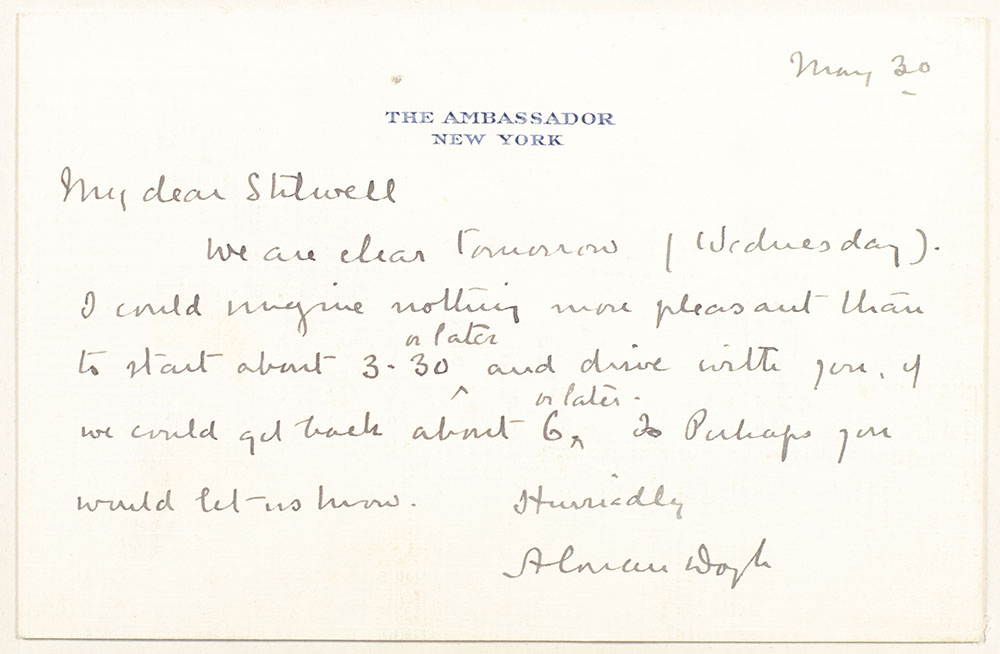 May 30
THE AMBASSADOR
NEW YORK
My dear Stilwell
We are clear tomorrow (Wednesday).
I could imagine nothing more pleasant than
or later
to start about 3-30 ^ and drive with you, if
or later.
we could get back about 6 ^ Perhaps you
would let us know. Hurriedly
A Conan Doyle